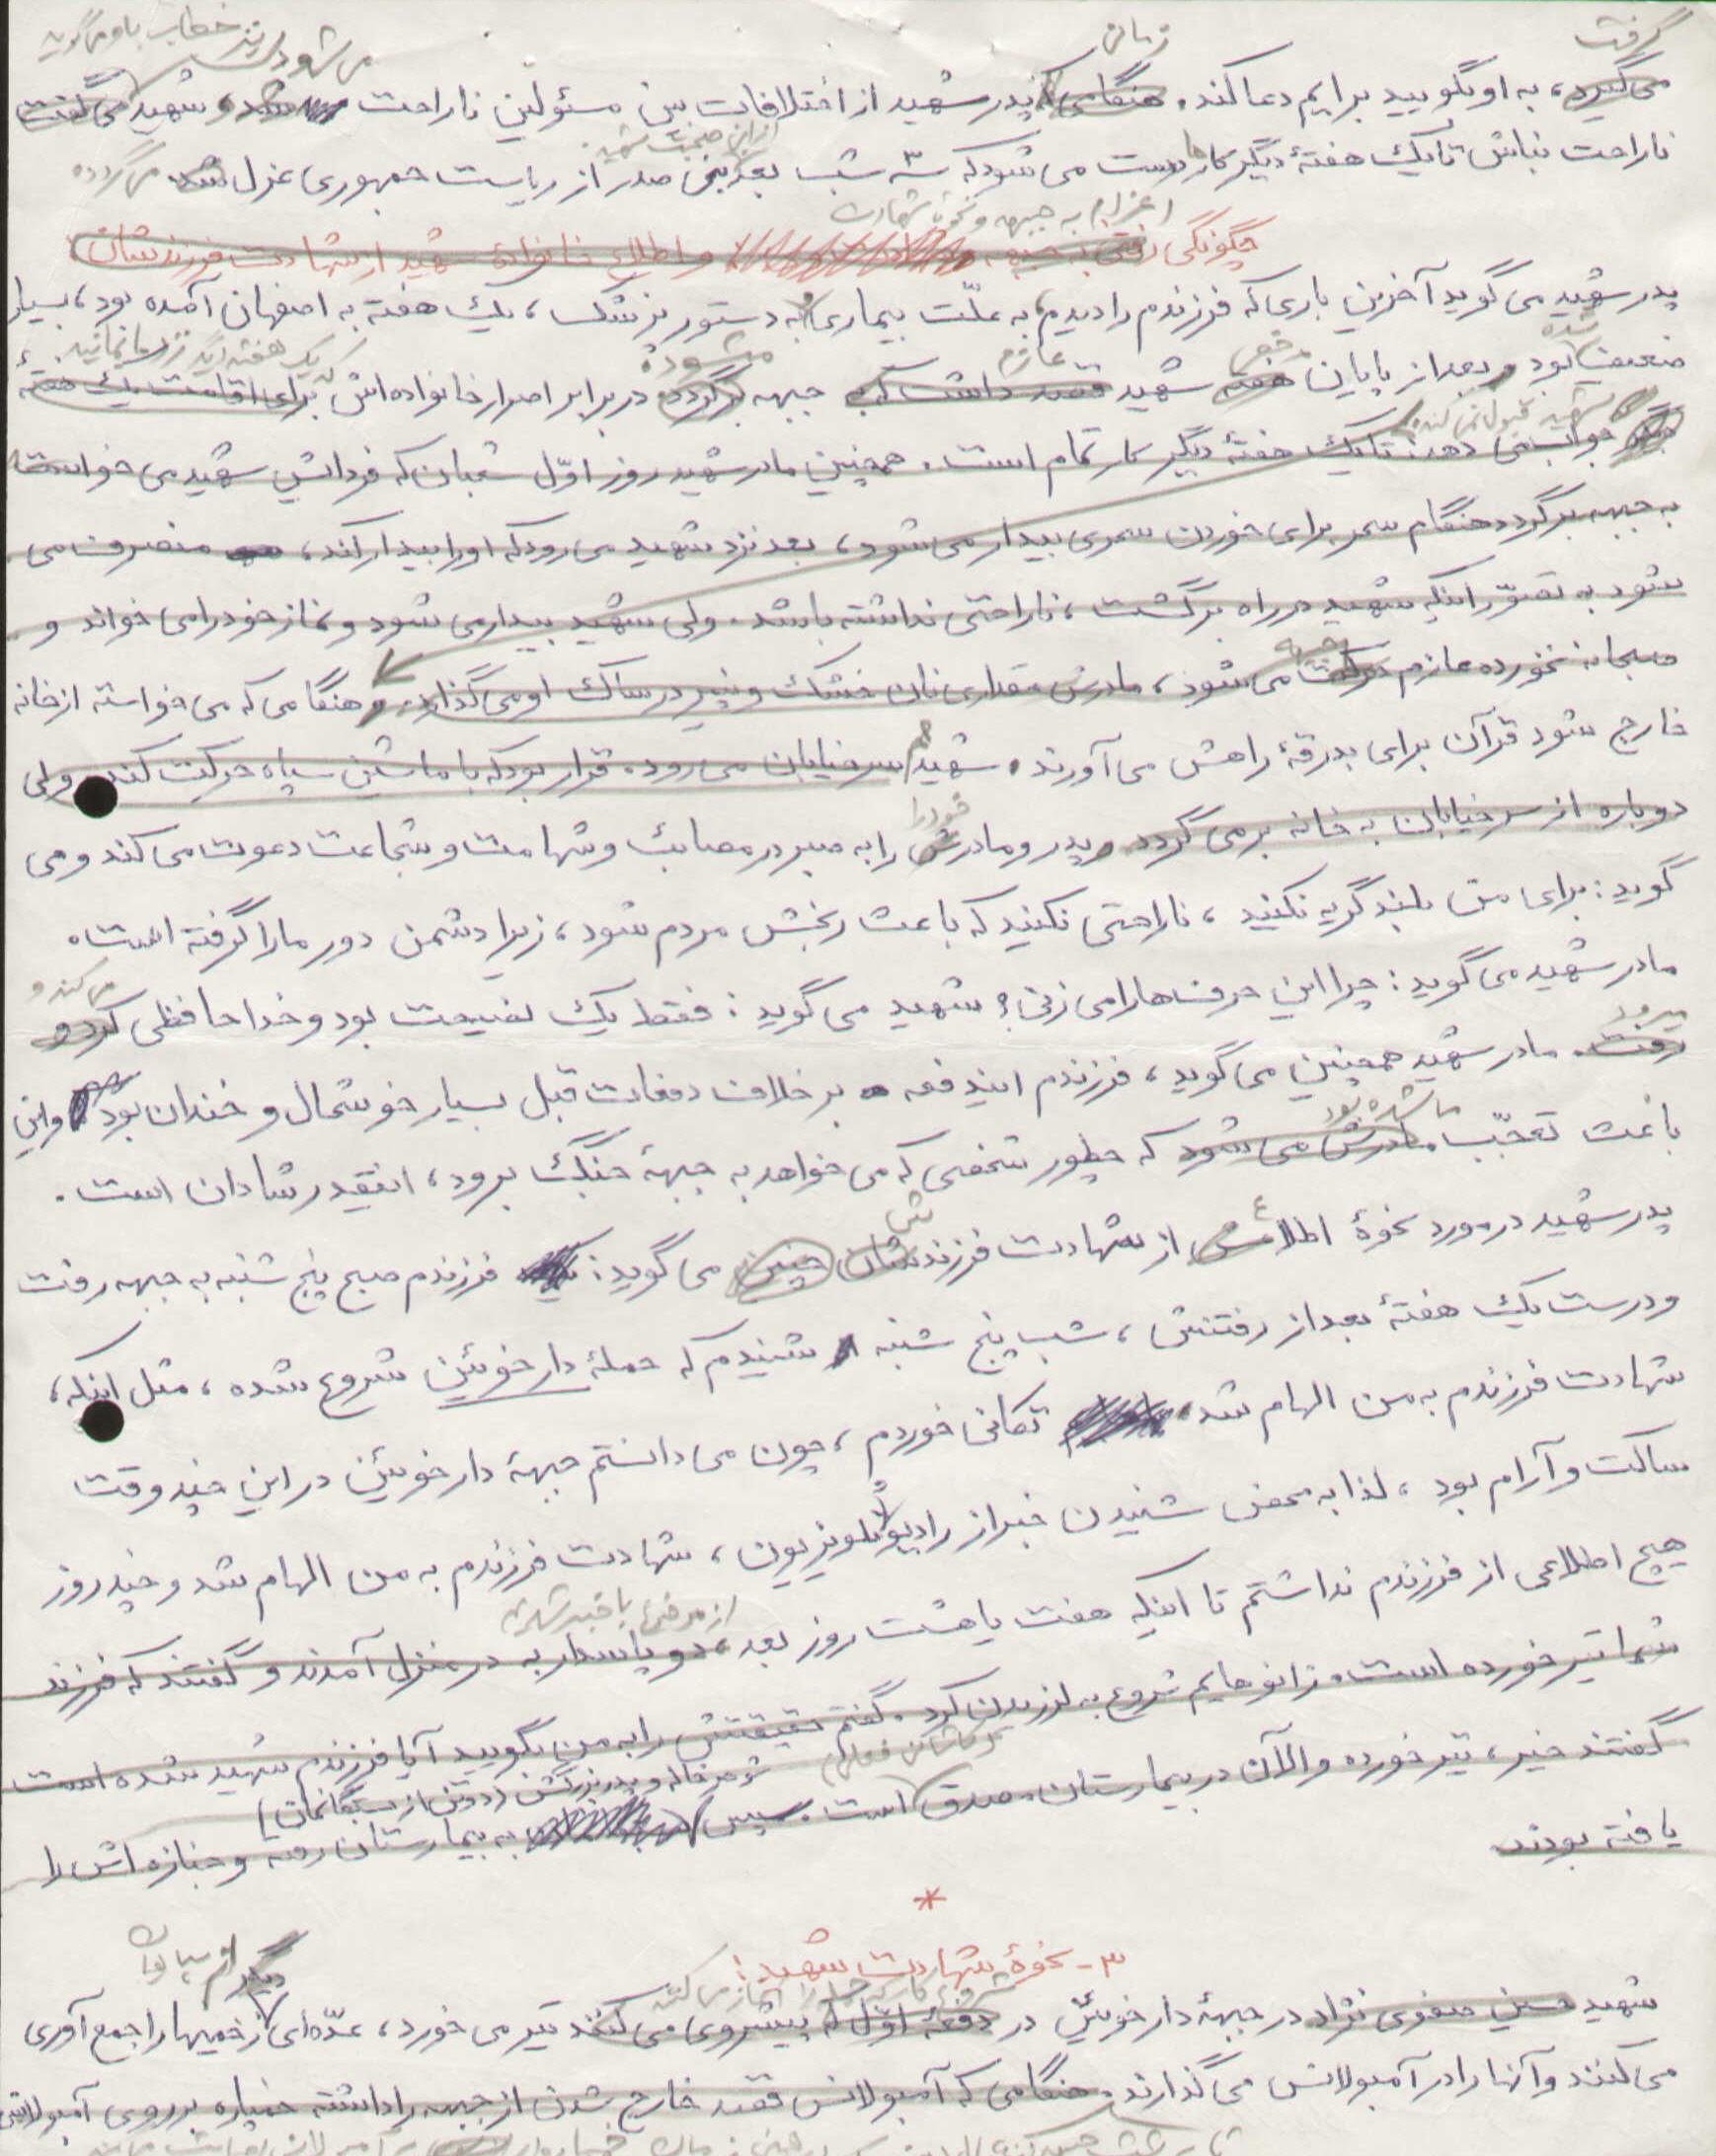 گرفت
زمانی
می شود ایشان خطاب باو می گوید
می گیرد، به او بگویید برایم دعا کند. هنگامی که پدر شهید از اختلافات بین مسئولین ناراحت شد، شهید می گفت
از این صحبت شهید
ناراحت نباش تا یک هفتهٔ دیگر کارها درست می شود که سه شب بعد بنی صدر از ریاست جمهوری عزل شد می گردد
اعزام به جبهه و نحوهٔ شهادت
چگونگی رفتن به جبهه و اطلاع خانوادهٔ شهید از شهادت فرزندشان
پدر شهید می گوید آخرین باری که فرزندم را دیدم، به علّت بیماری و به دستور پزشک، یک هفته به اصفهان آمده بود، بسیار
شده مرخصی عازم میشود که یک هفته دیگر نزد ما بمانید
ضعیف بود و بعد از پایان هفته شهید قصد داشت که به جبهه برگردد در برابر اصرار خانواده اش برای اقامت یک هفتهٔ
شهید قبول نمی کند
دیگر جواب می دهد: تا یک هفتهٔ دیگر کار تمام است. همچنین مادر شهید روز اوّل شعبان که فردایش شهید می خواست
به جبهه برگردد هنگام سحر برای خوردن سحری بیدار می شود، بعد نزد شهید می رود که او را بیدار کند، منصرف می
شود به تصوّر اینکه شهید در راه برگشت، ناراحتی نداشته باشد. ولی شهید بیدار می شود و نماز خود را می خواند و
جبهه
صبحانه نخورده عازم حرکت می شود، مادرش مقداری نان خشک و پنیر در ساک او می گذارد. و هنگامی که می خواسته از خانه
خارج شود قرآن برای بدرقهٔ راهش می آورند. شهید هم سر خیابان می رود. قرار بود که با ماشین سپاه حرکت کند ولی
خود را
دوباره از سر خیابان به خانه برمی گردد و پدر و مادرش را به صبر در مصائب و شهامت و شجاعت دعوت می کند و می
گوید: برای من بلند گریه نکنید، ناراحتی نکنید که باعث رنجش مردم شود، زیرا دشمن دور ما را گرفته است.
مادر شهید می گوید: چرا این حرف ها را می زنی؟ شهید می گوید: فقط یک نصیحت بود و خداحافظی کرد و
می کند و
میرود
رفت. مادر شهید همچنین می گوید، فرزندم ایندفعه بر خلاف دفعات قبل بسیار خوشحال و خندان بود و این
ما شده بود
باعث تعجّب مادرش می شود که چطور شخصی که می خواهد به جبههٔ جنگ برود، اینقدر شادان است.
پدر شهید در مورد نحوهٔ اطلاعش از شهادت فرزندشان چنین می گوید: فرزندم صبح پنج شنبه به جبهه رفت
و درست یک هفتهٔ بعد از رفتنش، شب پنج شنبه شنیدم که حملهٔ دارخوئین شروع شده، مثل اینکه،
شهادت فرزندم به من الهام شد تکانی خوردم، چون می دانستم جبههٔ دارخوئین در این چند وقت
ساکت و آرام بود، لذا به محض شنیدن خبر از رادیو و تلویزیون، شهادت فرزندم به من الهام شد و چند روز
هیچ اطلاعی از فرزندم نداشتم تا اینکه هفت یا هشت روز بعد، دو پاسدار به در منزل آمدند و گفتند که فرزند
شما تیر خورده است. زانوهایم شروع به لرزیدن کرد. گفتم حقیقتش را به من بگویید آیا فرزندم شهید شده است
گفتند خیر، تیر خورده و الآن در بیمارستان صدوق است. سپس به بیمارستان رفته و جنازه اش را
شوهر خاله و پدربزرگش (دو تن از بستگانمان)
یافته بودند
*
۳- نحوهٔ شهادت شهید:
شهید حسین صفوی نژاد در جبههٔ دارخوئین در دفعهٔ اوّل که پیشروی می کنند تیر می خورد، عدّه ای از زخمیها را جمع آوری
می کنند و آنها را در آمبولانس می گذارند. هنگامی که آمبولانس قصد خارج شدن از جبهه را داشته خمپاره بر روی آمبولانس